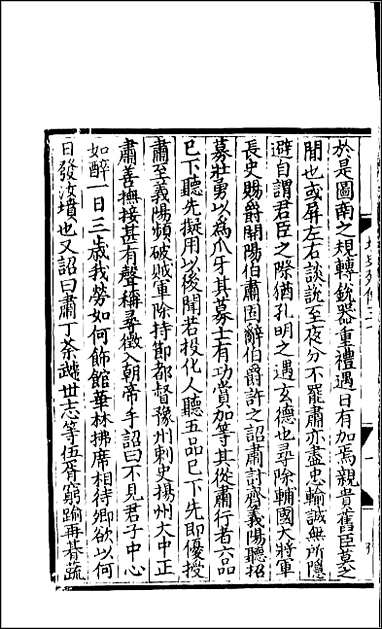 於是圖南之規轉銳器重禮遇日有加焉親貴舊臣莫之
間也或屏左右談說至夜分不罷肅亦盡忠輸誠無所隱
避自謂君臣之際猶孔明之遇玄德也尋除輔國大將軍
長史賜爵開陽伯肅固辭伯爵許之詔肅討齊義陽聽招
募壯勇以為爪牙其募士有功賞加等其從肅行者六品
巳下聽先擬用以後聞若投化人聽五品巳下先即優授
肅至義陽頻破賊軍除持節都督豫州刺史揚州大中正
肅善撫接甚有聲稱尋徵入朝帝手詔曰不見君子中心
如醉一日三歲我勞如何飾館華林拂席相待卿欲以何
日發汝墳也又詔曰肅丁荼虣世志等伍胥窮踰再朞蔬